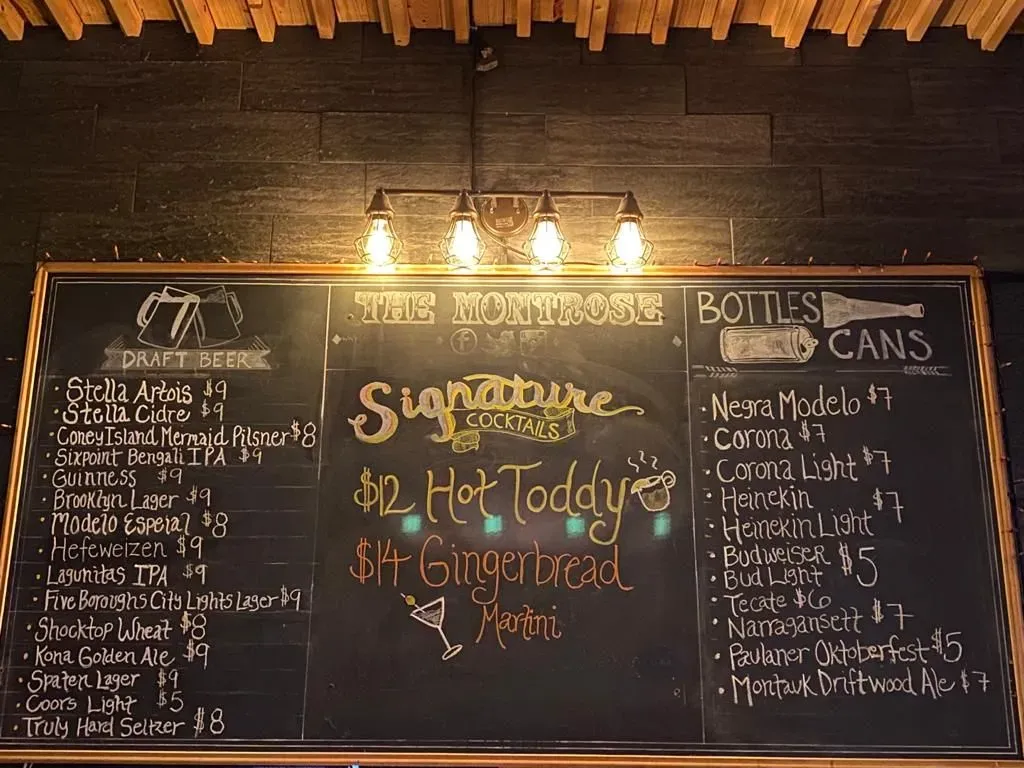 DRAFT BEER
• Stella Artois $9
• Stella Cidre $9
• Coney Island Mermaid Pilsner $8
• Sixpoint Bengali IPA $9
• Guinness $9
• Brooklyn Lager $9
• Modelo Especial $8
• Hefeweizen $9
• Lagunitas IPA $9
• Five Boroughs City Lights Lager $9
• Shocktop Wheat $8
• Kona Golden Ale $9
• Spaten Lager $9
• Coors Light $5
• Truly Hard Seltzer $8
THE MONTROSE
f
Signature
COCKTAILS
$12 Hot Toddy
$14 Gingerbread
Martini
BOTTLES
CANS
• Negra Modelo $7
• Corona $7
• Corona Light $7
• Heinekin $7
• Heinekin Light
• Budweiser $5
• Bud Light
• Tecate $6
• Narragansett $7
• Paulaner Oktoberfest $5
• Montauk Driftwood Ale $7